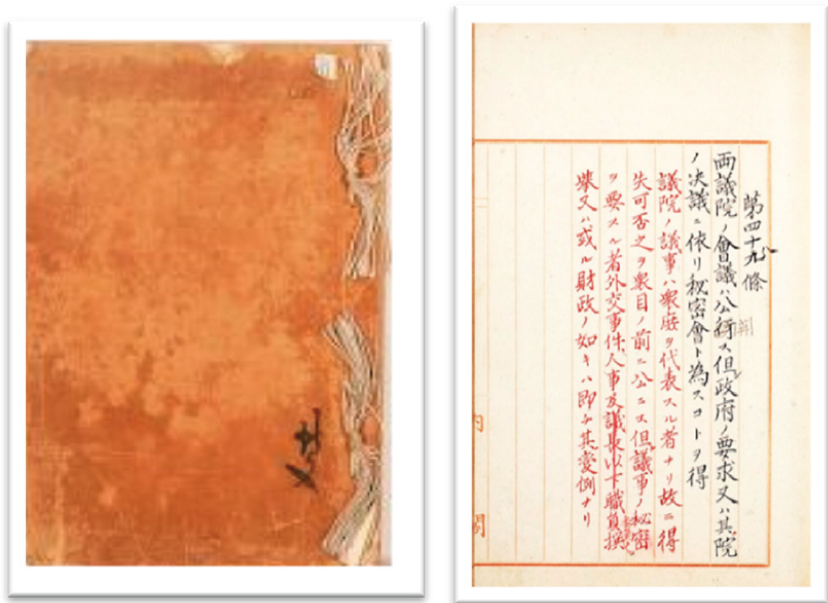 第四十九條
両議院ノ會議ハ公ス但政府ノ要求又ハ其院
ノ決議ニ依リ秘密會ト為スコトヲ得
議院ノ議事ハ衆庶ヲ代表スル者ナリ故ニ得
失可否之ヲ衆目ノ前ニ公ニス但議事ノ秘密
ヲ要スル者外交事件人事及議長以下職員撰
擧又ハ或ル財政ノ如キハ即チ其変例ナリ
内閣